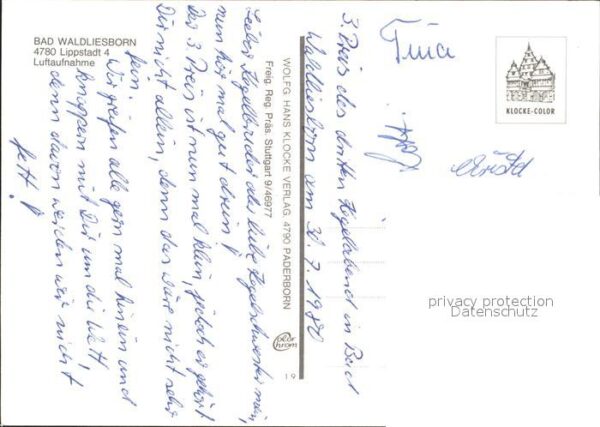 BAD WALDLIESBORN
4780 Lippstadt 4
Luftaufnahme
WOLFG. HANS KLOCKE VERLAG, 4790 PADERBORN
Freig. Reg. Präs. Stuttgart 9/46977
color chrom
19
KLOCKE-COLOR
3. Preis des dritten Kegelabend in Bad
Waldliesborn am 30.7.1980
Tina
Lieber Kegelbruder oder liebe Kegelschwester mein,
nun hör mal gut drein!
Der 3. Preis ist nun mal klein, jedoch er gehört
Dir nicht allein, denn das wäre nicht sehr
fein.
Wir greifen alle gern mal hinein und
knuppern mit Dir um die Wett,
denn davon werden wir nicht
fett!
privacy protection
Datenschutz